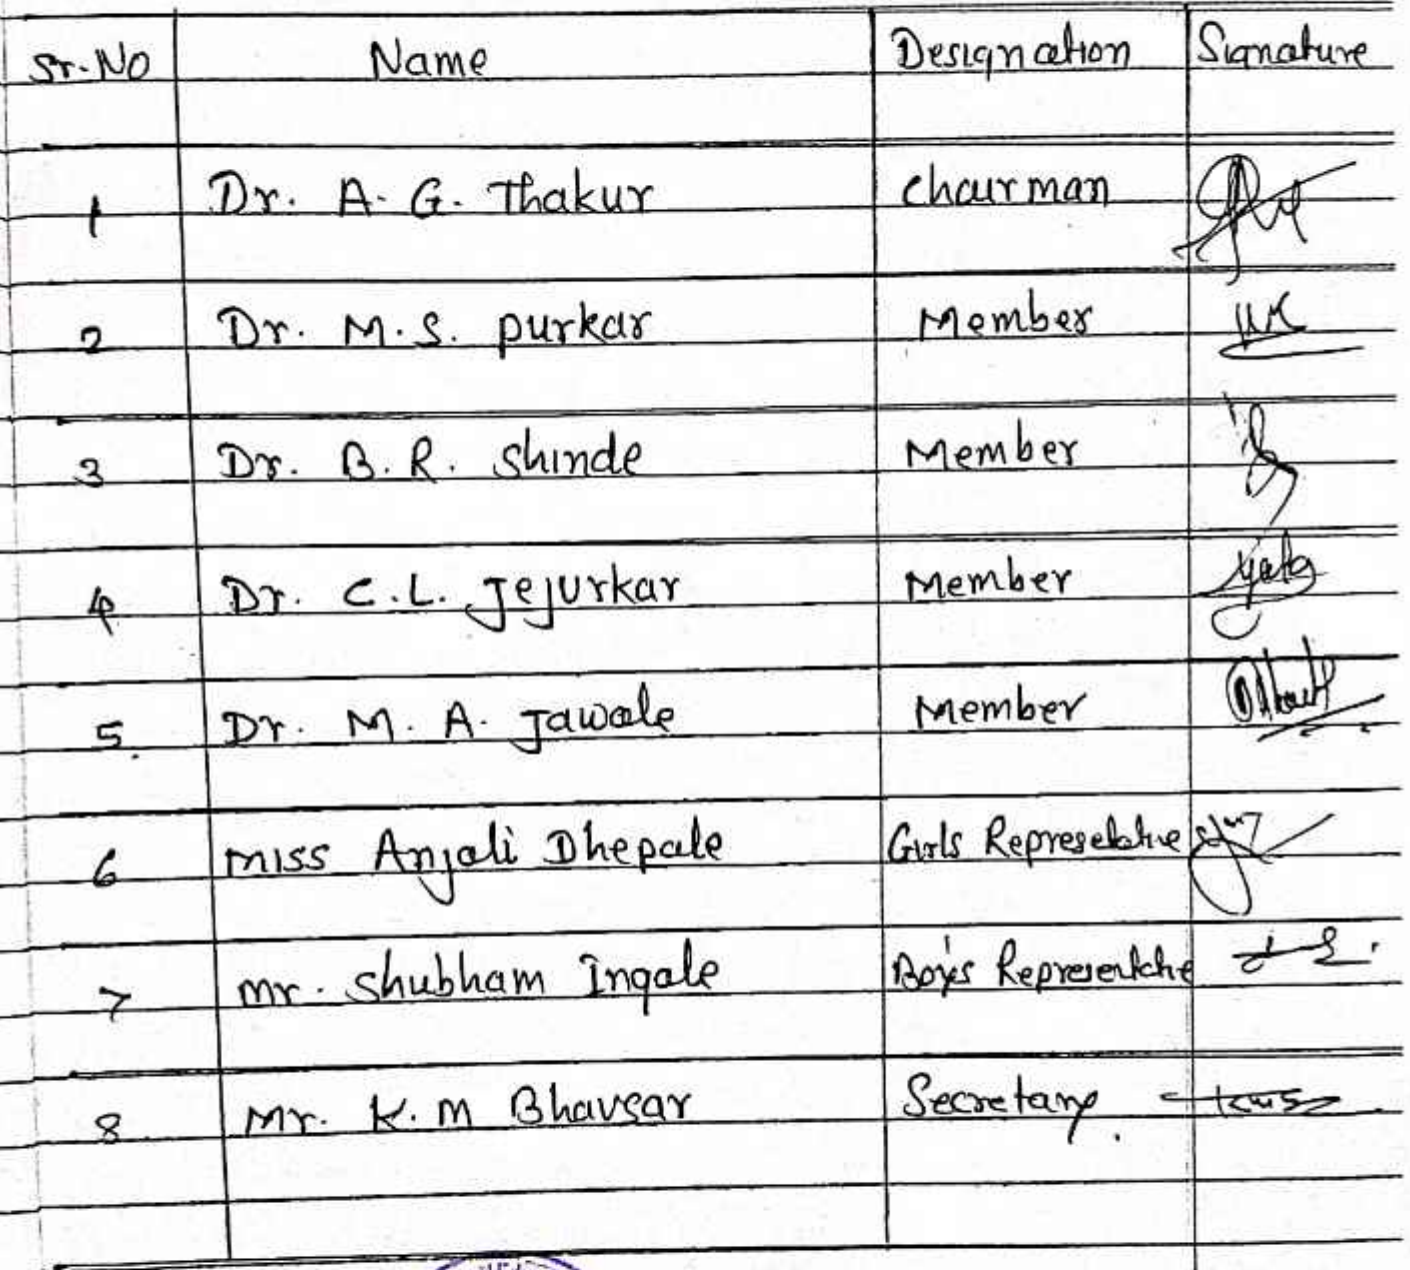 Sr. No Name Designation Signature
1 Dr. A. G. Thakur Chairman
2 Dr. M. S. purkar Member
3 Dr. B. R. Shinde Member
4 Dr. C. L. Jejurkar Member
5. Dr. M. A. Jawale Member
6 Miss Anjali Dhepale Girls
7 Mr. Shubham Ingale Boy's
8 Mr. K. M Bhavsar Secretary.